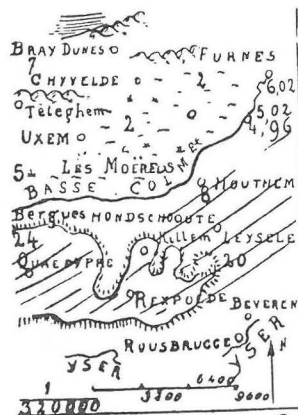 BRAY DUNES
FURNES
7
CHYVELDE
2
6,02
Téteghem
5,02
2
4,96
UXEM
5
LES MOËRES
BASSE COLME
HOUTHEM
8
Bergues HONDSCHOOTE
24
Killem LEYSELE
QUAEDYPRE
20
REXPOEDE
BEVEREN
ROUSBRUGGE
YSER
YSER
N
1
320000
3200
6400
9600